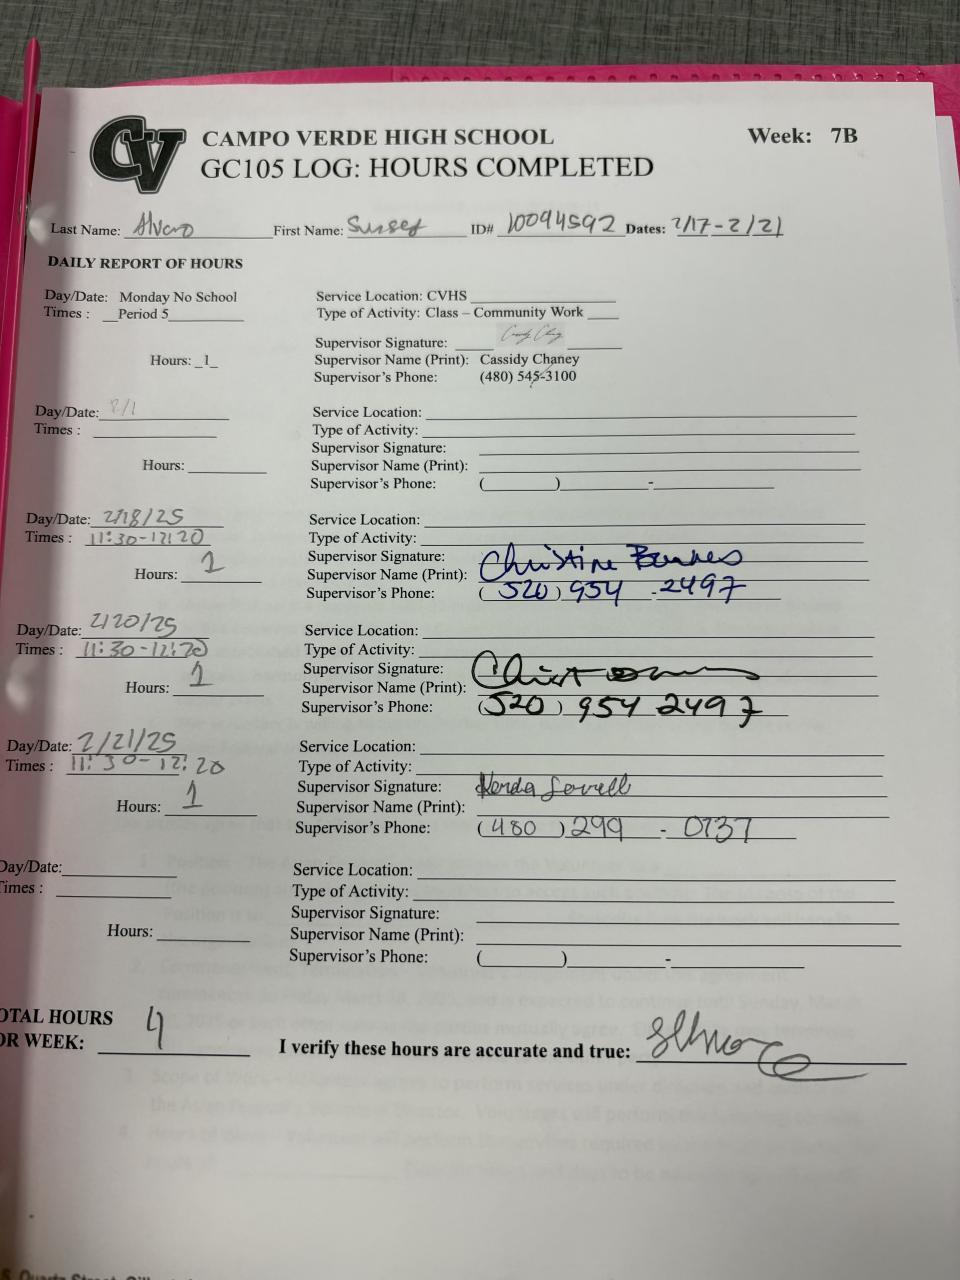 CV
CAMPO VERDE HIGH SCHOOL
Week: 7B
GC105 LOG: HOURS COMPLETED
Last Name: Alvaro First Name: Sunset ID# 10094592 Dates: 2/17-2/21
DAILY REPORT OF HOURS
Day/Date: Monday No School
Times : Period 5
Hours: 1
Service Location: CVHS
Type of Activity: Class – Community Work
Supervisor Signature:
Supervisor Name (Print): Cassidy Chaney
Supervisor's Phone: (480) 545-3100
Day/Date:
Times :
Hours:
Service Location:
Type of Activity:
Supervisor Signature:
Supervisor Name (Print):
Supervisor's Phone: ( ) -
Day/Date: 2/18/25
Times : 11:30-12:20
Hours: 1
Service Location:
Type of Activity:
Supervisor Signature: Christine
Supervisor Name (Print):
Supervisor's Phone: (520) 954-2497
Day/Date: 2/20/25
Times : 11:30-12:20
Hours: 1
Service Location:
Type of Activity:
Supervisor Signature:
Supervisor Name (Print):
Supervisor's Phone: (520) 954 2497
Day/Date: 2/21/25
Times : 11:30-12:20
Hours: 1
Service Location:
Type of Activity:
Supervisor Signature: Lovell
Supervisor Name (Print):
Supervisor's Phone: (480) 299 - 0737
Day/Date:
Times :
Hours:
Service Location:
Type of Activity:
Supervisor Signature:
Supervisor Name (Print):
Supervisor's Phone: ( ) -
OTAL HOURS
OR WEEK: 4
I verify these hours are accurate and true: